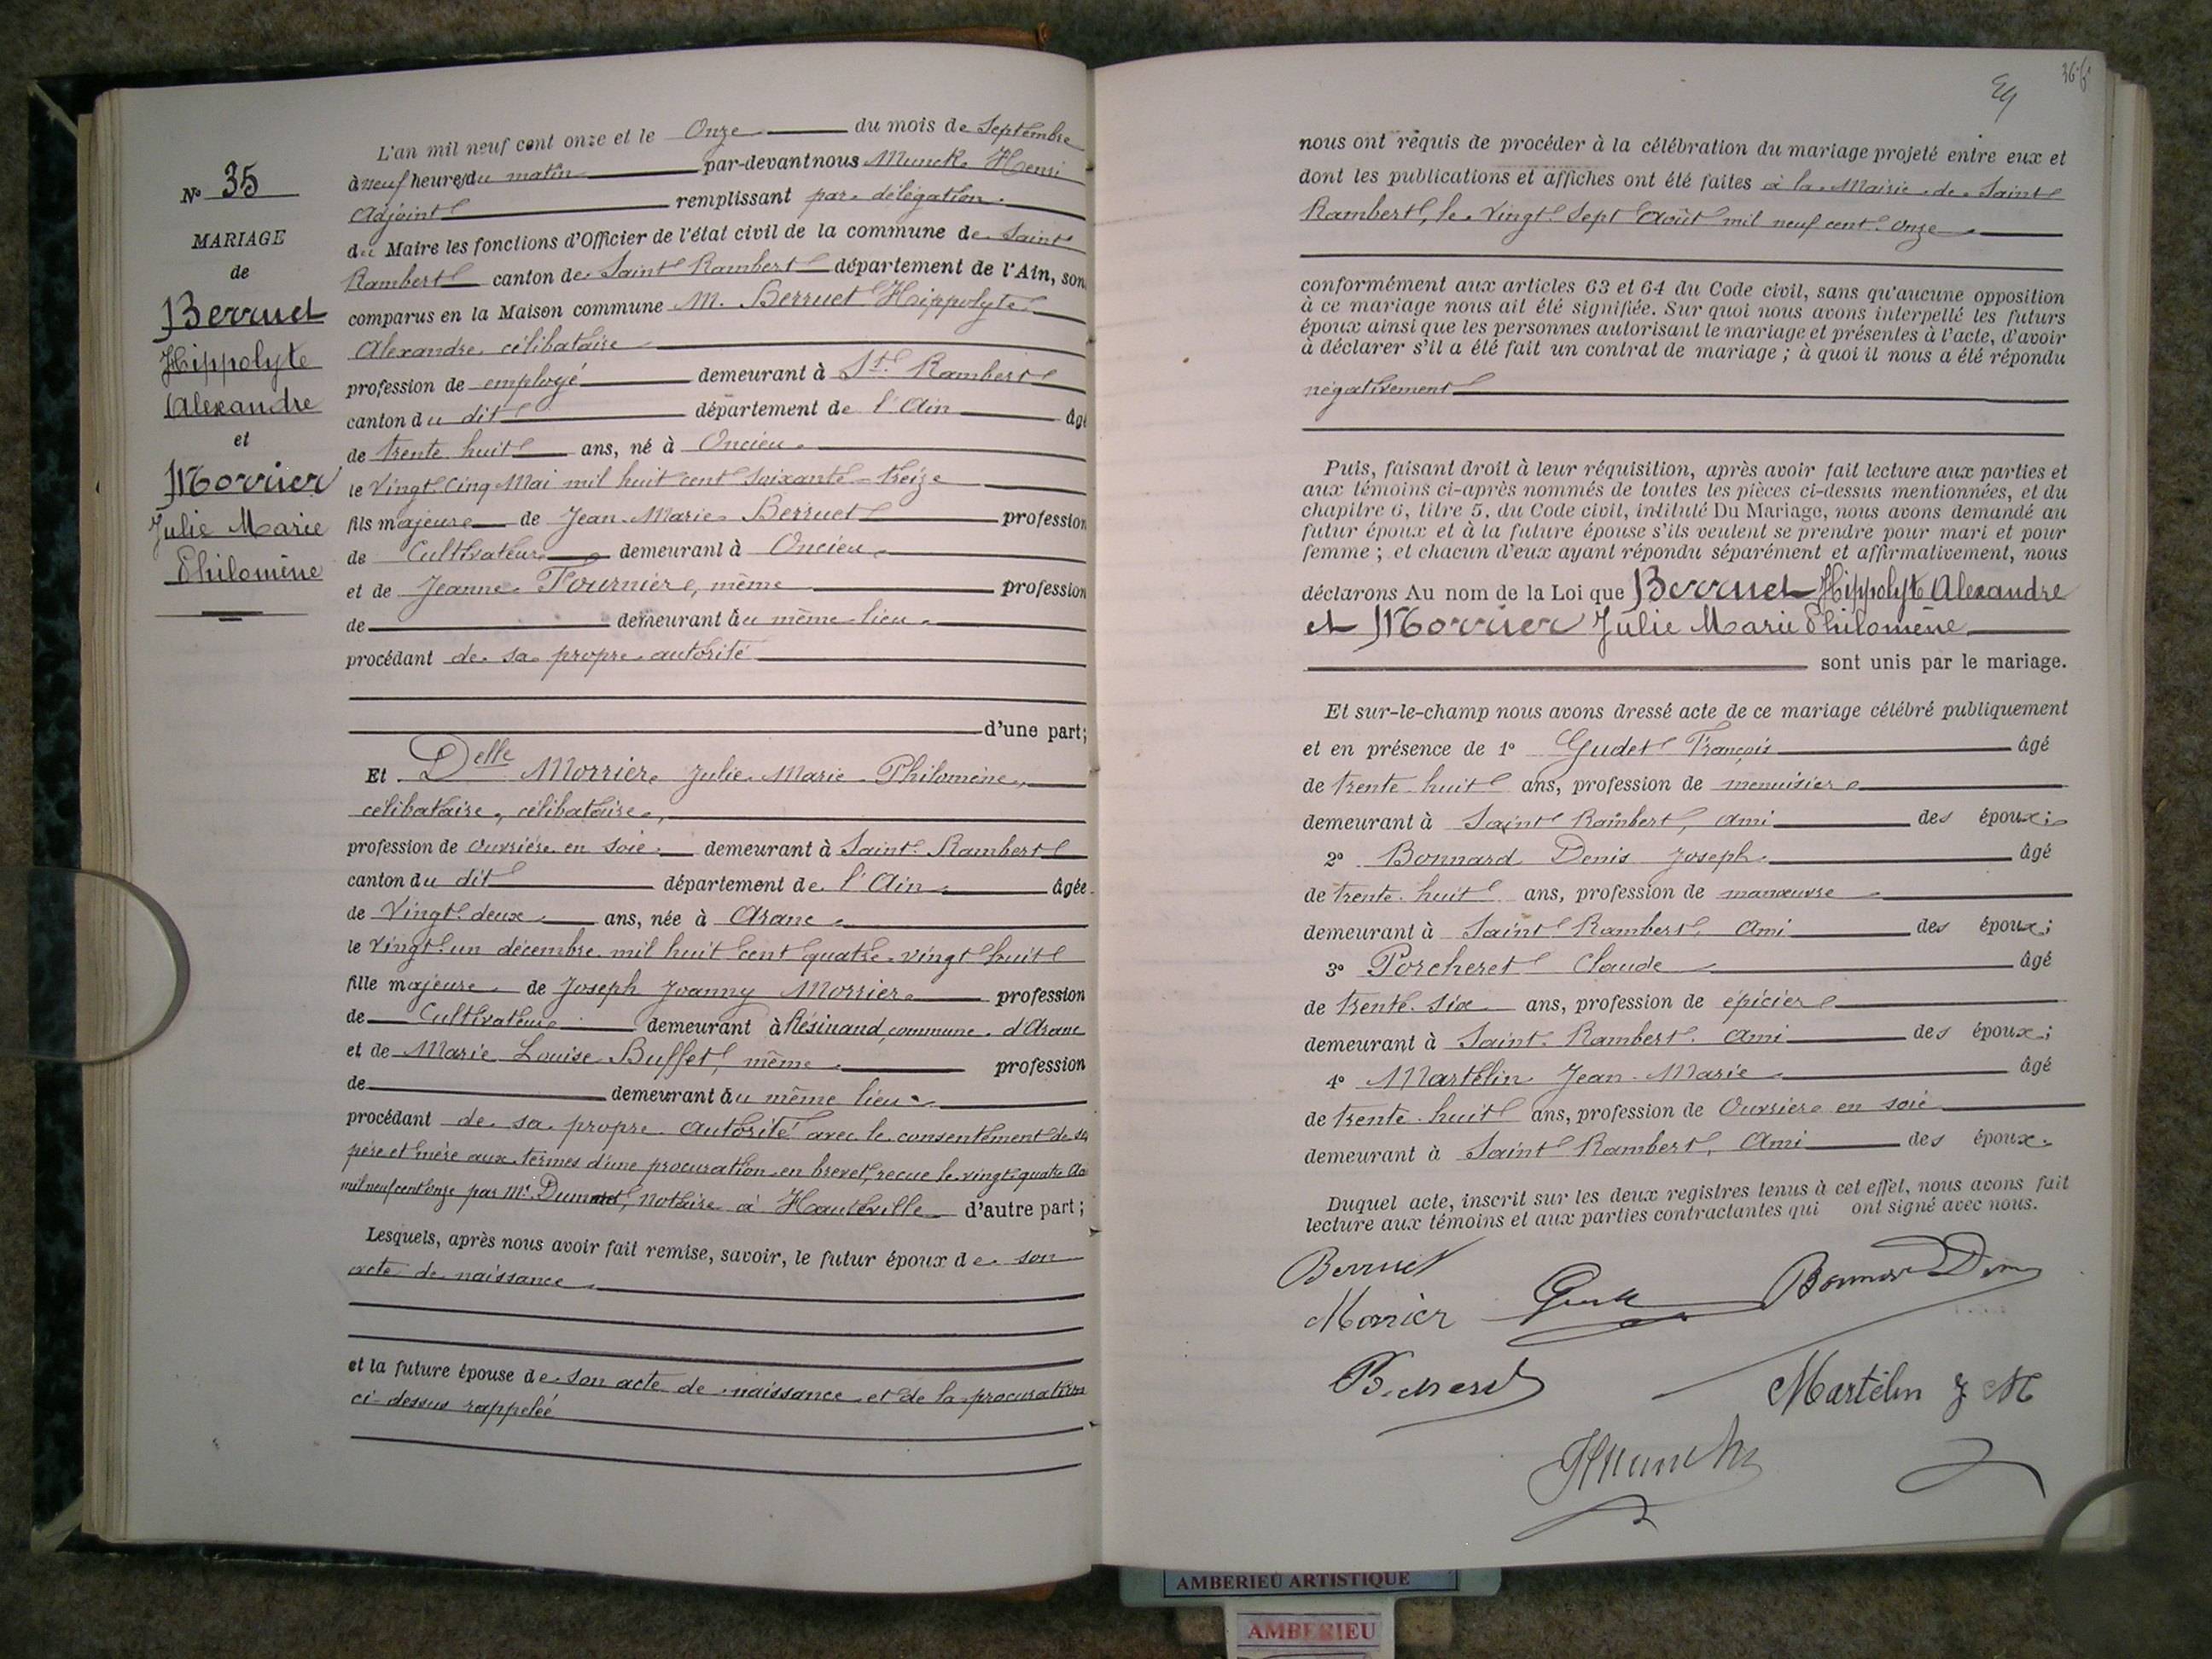 N° 35
MARIAGE
de
Berruet
Hippolyte
Alexandre
et
Morrier
Julie Marie
Philomène
L'an mil neuf cent onze et le Onze du mois de Septembre
à neuf heures du matin par-devant nous Munck Henri
Adjoint remplissant par délégation
du Maire les fonctions d'Officier de l'état civil de la commune de Saint
Rambert canton de Saint Rambert département de l'Ain, son
comparus en la Maison commune M. Berruet Hippolyte
Alexandre, célibataire
profession de employé demeurant à St. Rambert
canton du dit département de l'Ain âgé
de trente huit ans, né à Oncieu
le Vingt Cinq Mai mil huit cent soixante-treize
fils majeur de Jean-Marie Berruet profession
de Cultivateur demeurant à Oncieu
et de Jeanne Fournier, même profession
de demeurant au même lieu
procédant de sa propre autorité
d'une part;
Et Delle Morrier Julie Marie Philomène,
célibataire, célibataire,
profession de Ouvrière en soie demeurant à Saint Rambert
canton du dit département de l'Ain âgée
de Vingt deux ans, née à Aranc
le Vingt un décembre mil huit cent quatre-vingt huit
fille majeure de Joseph Joanny Morrier profession
de Cultivateur demeurant à Résinand, commune d'Aranc
et de Marie Louise Buffet, même profession
de demeurant au même lieu
procédant de sa propre autorité avec le consentement de ses
père et mère aux termes d'une procuration en brevet, reçue le vingt quatre
mil neuf cent onze par Me notaire à Hauteville d'autre part;
Lesquels, après nous avoir fait remise, savoir, le futur époux de son
acte de naissance
et la future épouse de son acte de naissance et de la procuration
ci-dessus rappelée
29
nous ont requis de procéder à la célébration du mariage projeté entre eux et
dont les publications et affiches ont été faites à la Mairie de Saint
Rambert, le Vingt Sept Août mil neuf cent onze
conformément aux articles 63 et 64 du Code civil, sans qu'aucune opposition
à ce mariage nous ait été signifiée. Sur quoi nous avons interpellé les futurs
époux ainsi que les personnes autorisant le mariage et présentes à l'acte, d'avoir
à déclarer s'il a été fait un contrat de mariage; à quoi il nous a été répondu
négativement
Puis, faisant droit à leur réquisition, après avoir fait lecture aux parties et
aux témoins ci-après nommés de toutes les pièces ci-dessus mentionnées, et du
chapitre 6, titre 5, du Code civil, intitulé Du Mariage, nous avons demandé au
futur époux et à la future épouse s'ils veulent se prendre pour mari et pour
femme; et chacun d'eux ayant répondu séparément et affirmativement, nous
déclarons Au nom de la Loi que Berruet Hippolyte Alexandre
et Morrier Julie Marie Philomène
sont unis par le mariage.
Et sur-le-champ nous avons dressé acte de ce mariage célébré publiquement
et en présence de 1° Gudet François âgé
de trente huit ans, profession de menuisier
demeurant à Saint Rambert, Ami des époux;
2° Bonnard Denis Joseph âgé
de trente huit ans, profession de manœuvre
demeurant à Saint Rambert, Ami des époux;
3° Porcheret Claude âgé
de trente six ans, profession de épicier
demeurant à Saint Rambert, Ami des époux;
4° Martelin Jean-Marie âgé
de trente huit ans, profession de Ouvrier en soie
demeurant à Saint Rambert, Ami des époux.
Duquel acte, inscrit sur les deux registres tenus à cet effet, nous avons fait
lecture aux témoins et aux parties contractantes qui ont signé avec nous.
Berruet
Morrier
Martelin J M
AMBERIEU ARTISTIQUE
AMBERIEU